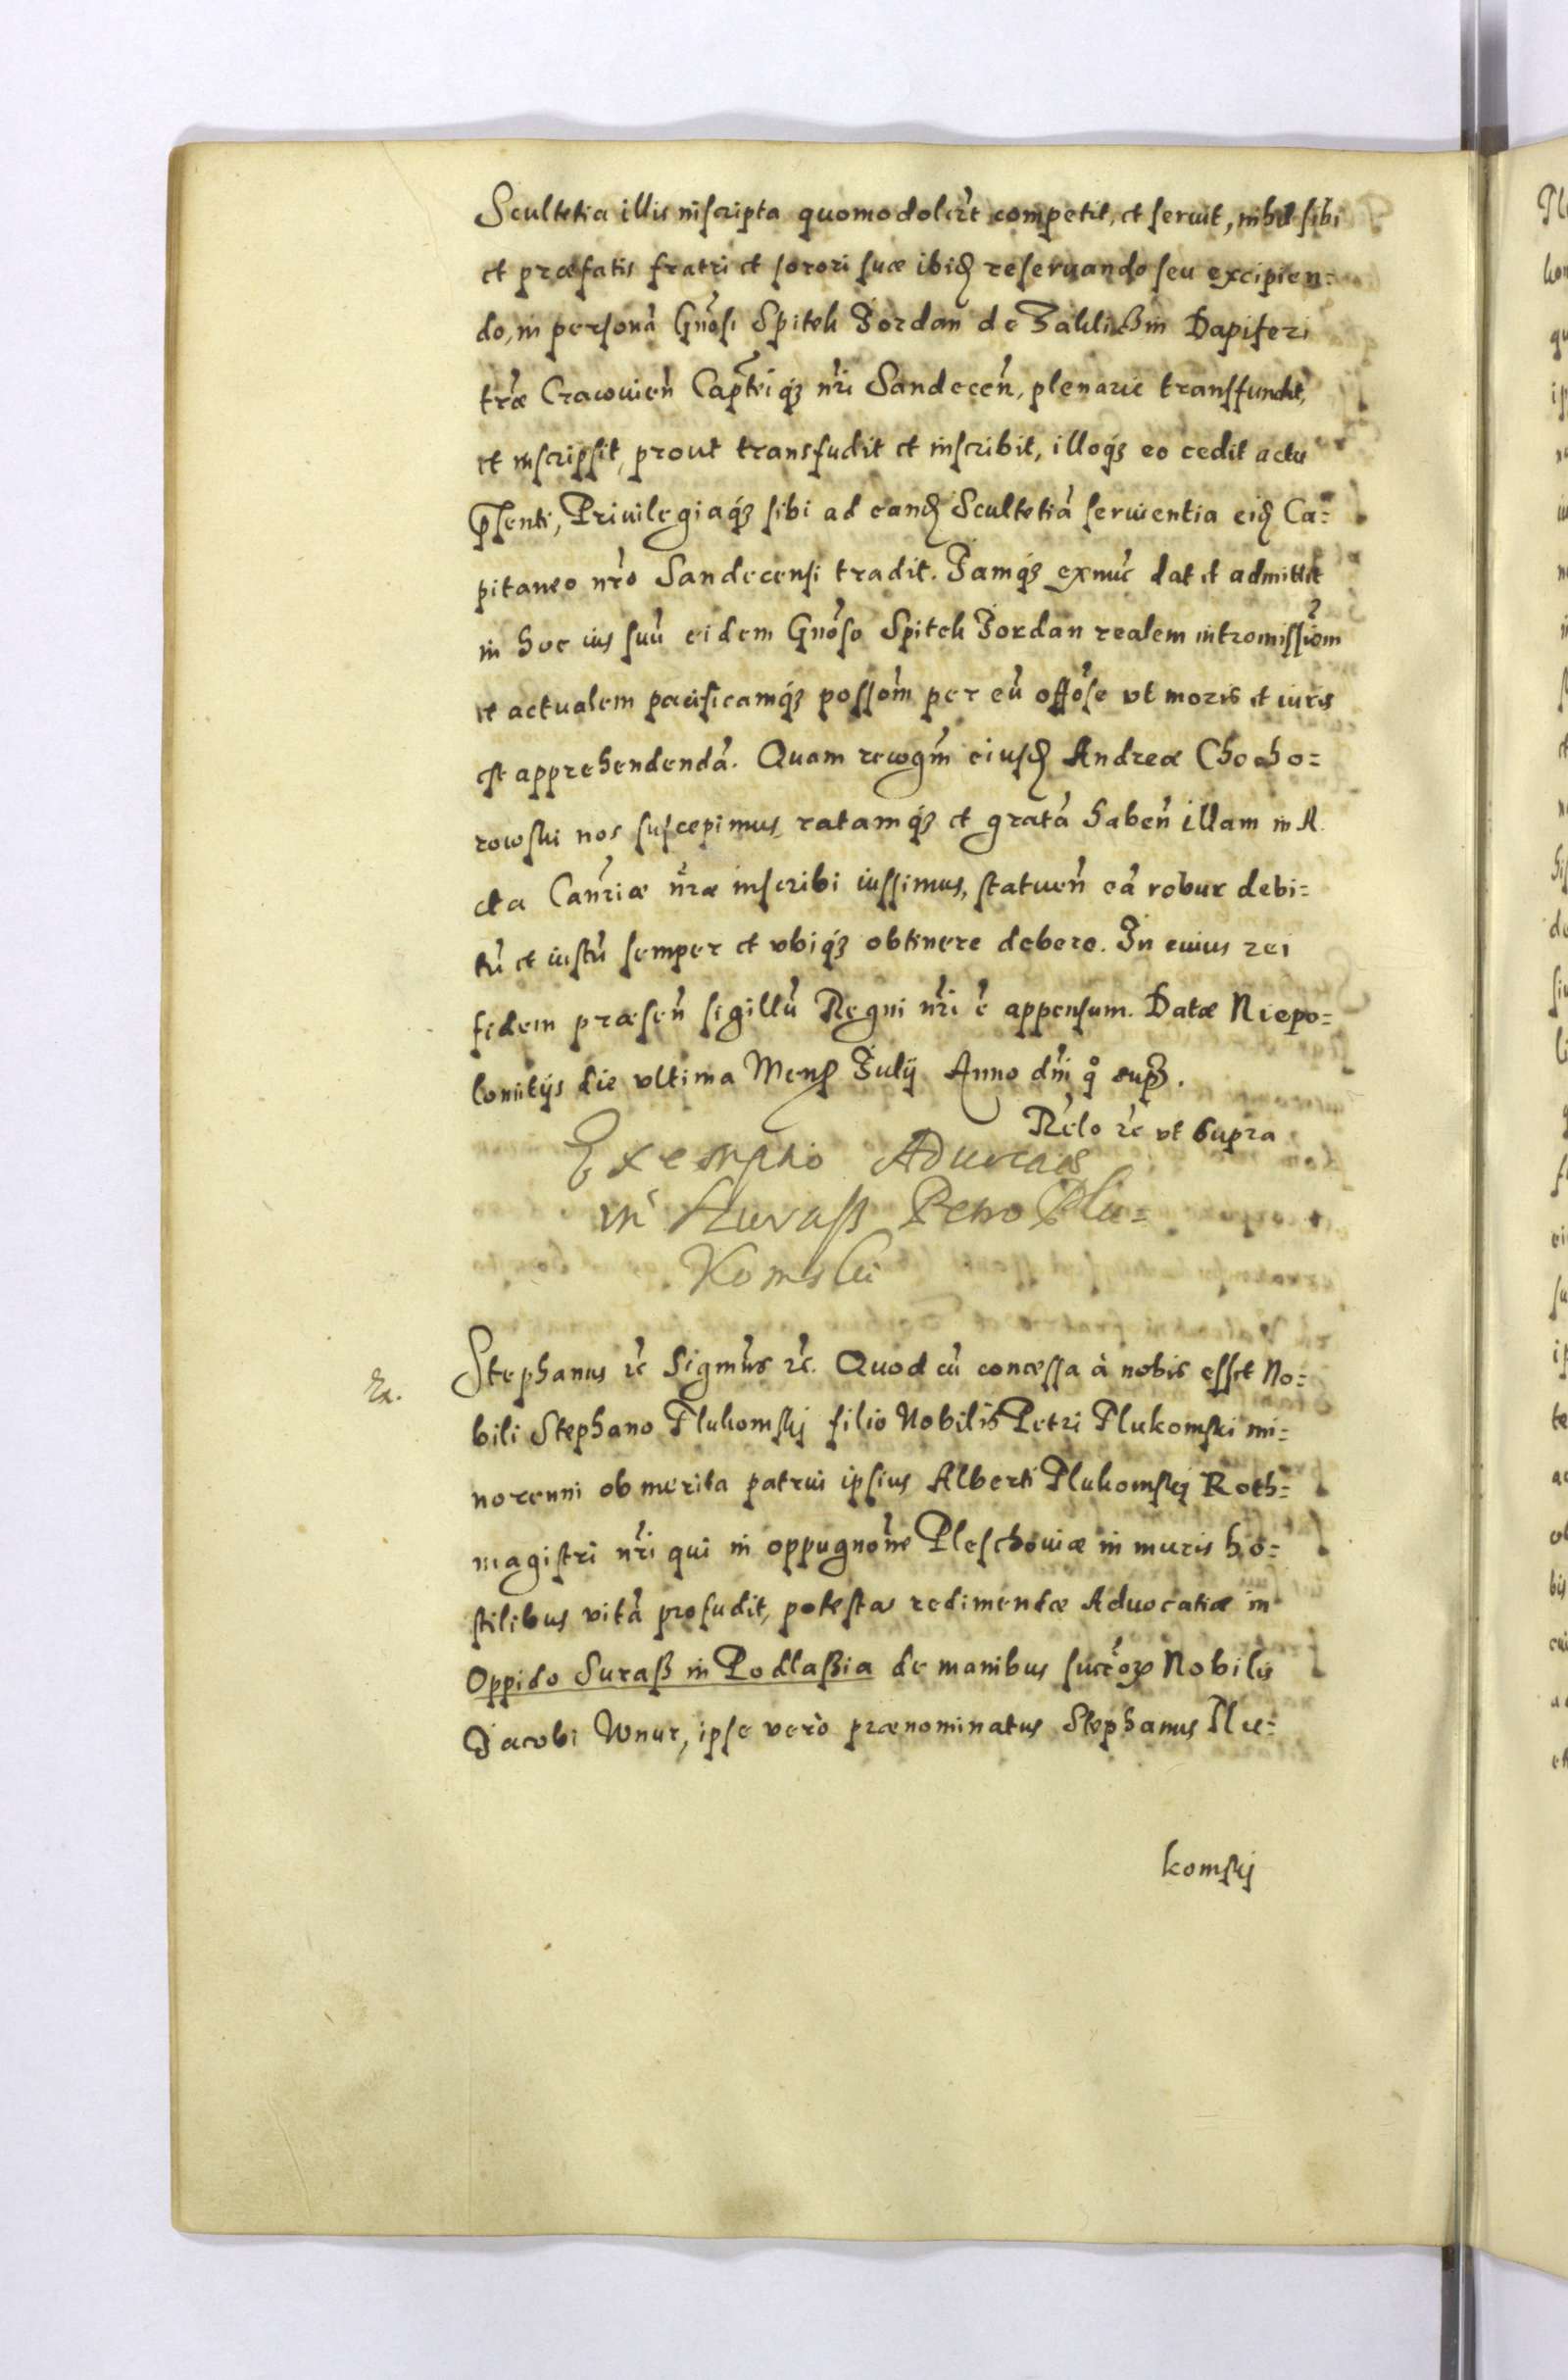 Scultetia illis inscripta quomodolibt competit, et servit, nihil sibi
et præfatis fratri et sorori suæ ibid reseruando seu excipien=
do, in personā Gnosi Spitek Jordan de Zakliczin Dapiferi
træ Cracovien Captniq3 nri Sandecen, plenarie transfundit,
et inscripsit, prout transfudit et inscribit, illoq3 eo cedit actu
pnsenti, Privilegiaq3 sibi ad eand Scultetiā seruientia eid Ca=
pitaneo nro Sandecensi tradit. Jamq3 exnuc dat et admittit
in hoc ius suū eidem Gnoso Spitek Jordan realem intromissiom
et actualem pacificamq3 possom per eū offose vt moris et iuris
est apprehendendā. Quam recogm eiusd Andreæ Chocho=
rowski nos suscepimus, ratamq3 et gratā haben illam in A
cta Canriæ nræ inscribi iussimus, statuen eā robur debi=
tū et iustū semper et vbiq3 obtinere debere. In cuius rei
fidem præsen sigillū Regni nri ē appensum. Datæ Niepo=
lomitijs die vltima Mens Julij Anno dni qo supra.
Relo rc vt supra
Exemptio Aduocatiæ
in Suraß Petro Plu=
komski
Stephanus rc Sigmns rc. Quod cū concessa à nobis esset No=
bili Stephano Plukomskj filio Nobilis Petri Plukomski mi=
norenni ob merita patrui ipsius Alberti Plukomskj Roth=
magistri nri qui in oppugnone Pleschoviæ in muris ho=
stilibus vitā profudit, potestas redimendæ Aduocatiæ in
Oppido Suraß in Podlaßia de manibus succor Nobilis
Jacobi Wnur, ipse verò prænominatus Stephanus Plu=
komskj